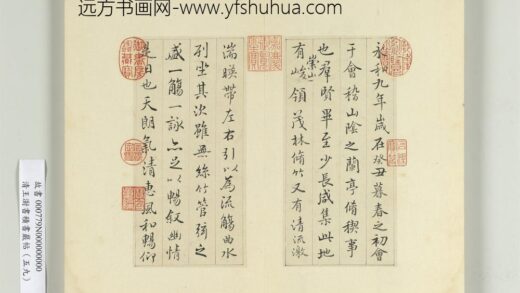 远方书画网-www.yfshuhua.com
永和九年歲在癸丑暮春之初會
于會稽山陰之蘭亭脩稧事
也羣賢畢至少長咸集此地
有崇山峻領茂林脩竹又有清流激
湍暎帶左右引以為流觴曲水
列坐其次雖無絲竹管弦之
盛一觴一詠亦足以暢敘幽情
是日也天朗氣清惠風和暢仰
故書 000779N00000000
清王澍書積書巖帖(五九)